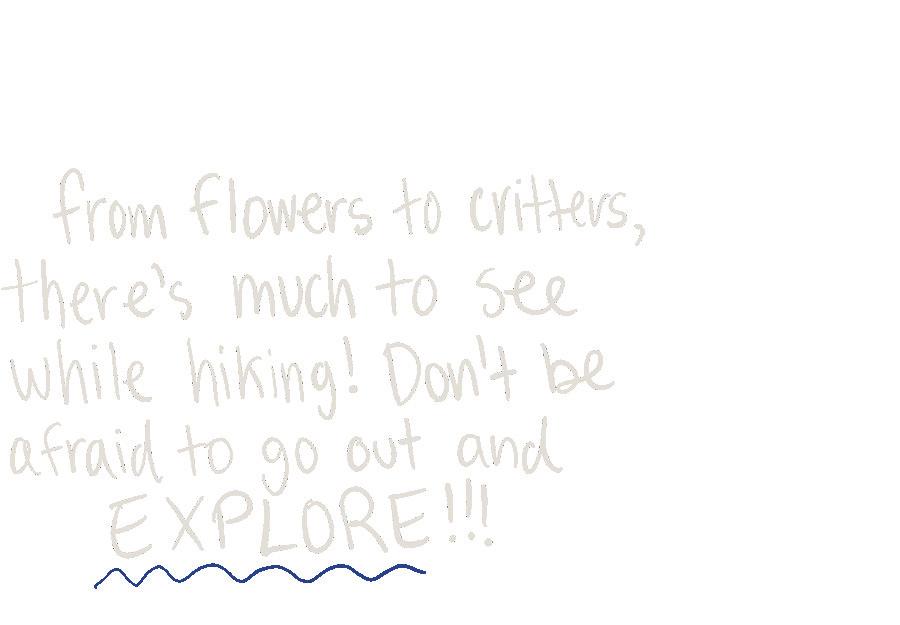 from flowers to critters,
there's much to see
while hiking! Don't be
afraid to go out and
EXPLORE!!!